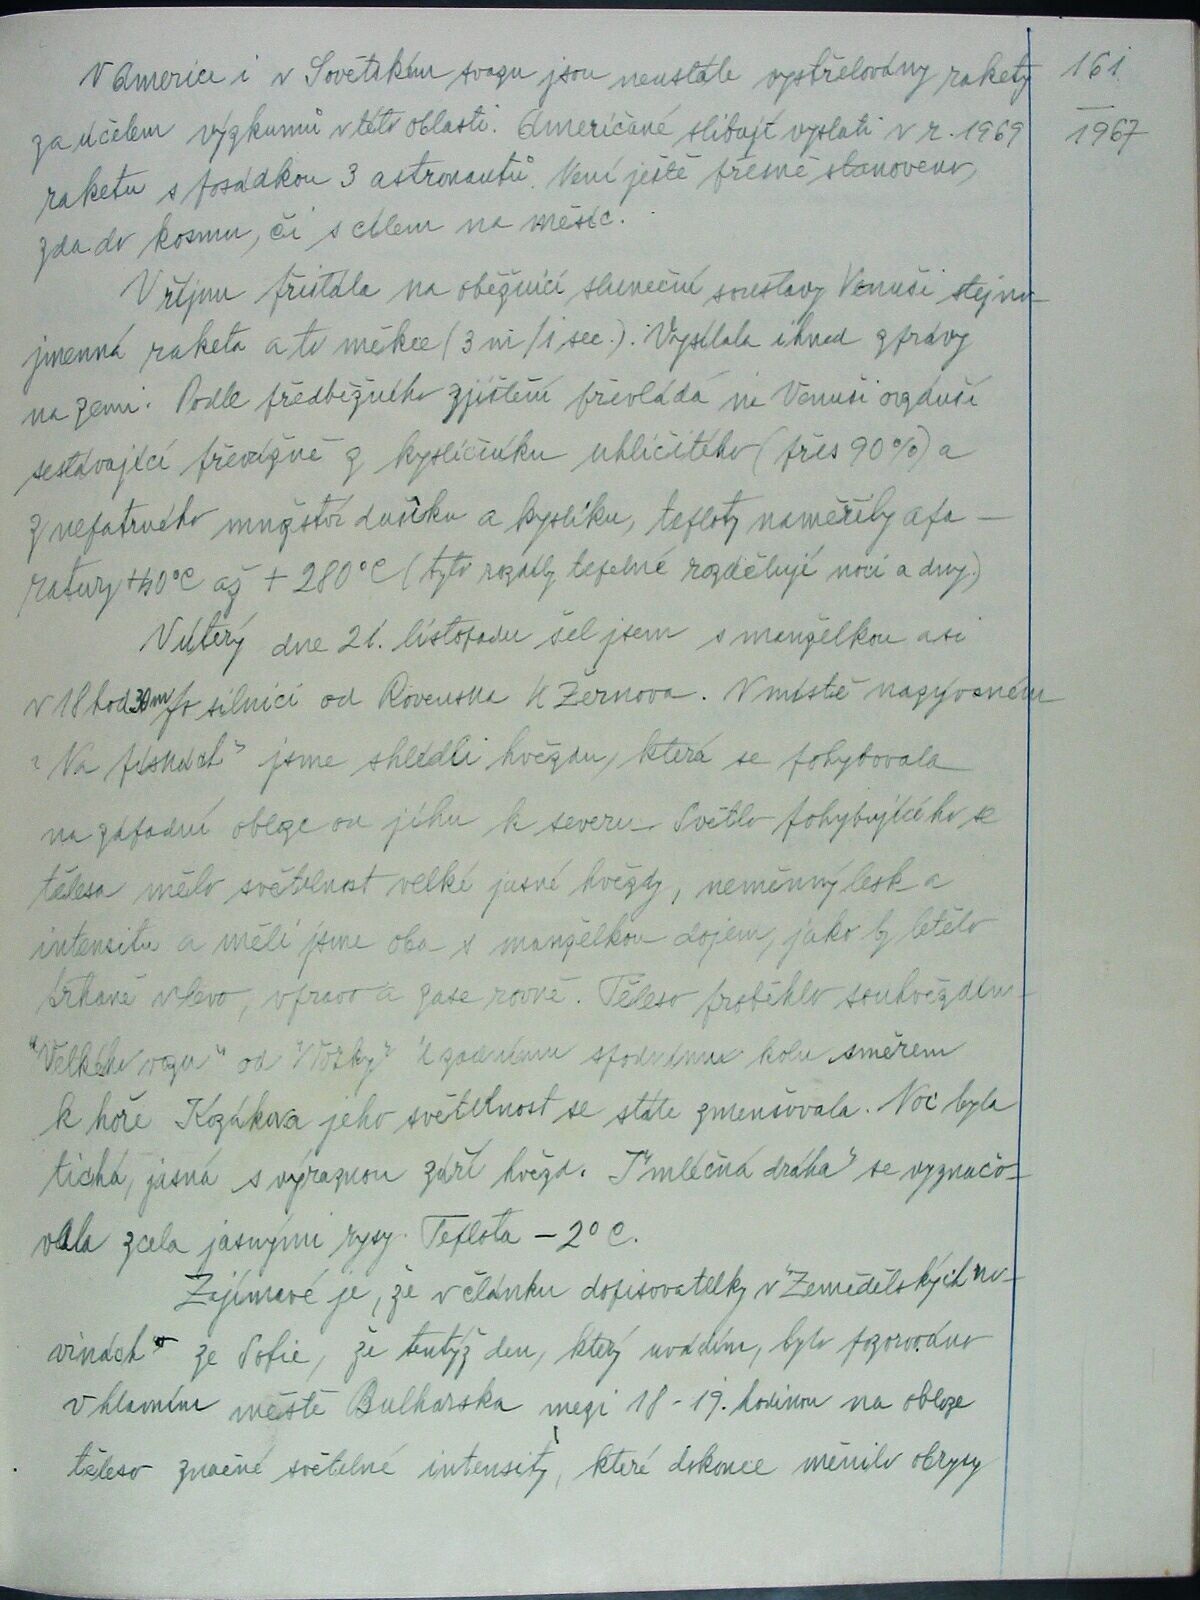 V Americe i v Sovětském svazu jsou neustále vystřelovány rakety
161
za účelem výzkumů v této oblasti. Američané slibují vyslati v r. 1969
1967
raketu s posádkou 3 astronautů. Není ještě přesně stanoveno,
zda do kosmu, či s cílem na měsíc.
V říjnu přistála na oběžnici sluneční soustavy Venuši stejno-
jmenná raketa a to měkce (3 m/1 sec.). Vysílala ihned zprávy
na zemi. Podle předběžného zjištění převládá na Venuši ovzduší
sestávající převážně z kysličníku uhličitého (přes 90%) a
z nepatrného množství dusíku a kyslíku, teploty naměřily apa-
ratury +40°C až + 280°C (tyto rozdíly tepelné rozdělují noci a dny.)
V úterý dne 21. listopadu šel jsem s manželkou asi
v 18 hod 30 m po silnici od Rovenska k Žernova. V místě nazývaném
"Na pískách" jsme shlédli hvězdu, která se pohybovala
na západní obloze od jihu k severu. Světlo pohybujícího se
tělesa mělo světelnost velké jasné hvězdy, neměnný lesk a
intensitu a měli jsme oba s manželkou dojem, jako by letělo
trhaně vlevo, vpravo a zase rovně. Těleso proběhlo souhvězdím
"Velkého vozu" od "Vozky" k zadnímu spodnímu kolu směrem
k hoře Kozákova jeho světelnost se stále zmenšovala. Noc byla
tichá, jasná s výraznou září hvězd. I "mléčná dráha" se vyznačo-
vala zcela jasnými rysy. Teplota - 2° C.
Zajímavé je, že v článku dopisovatelky v "Zemědělských no-
vinách" ze Sofie, že tentýž den, který uvádím, bylo pozorováno
v hlavním městě Bulharska mezi 18 - 19. hodinou na obloze
těleso značné světelné intensity, které dokonce měnilo obrysy